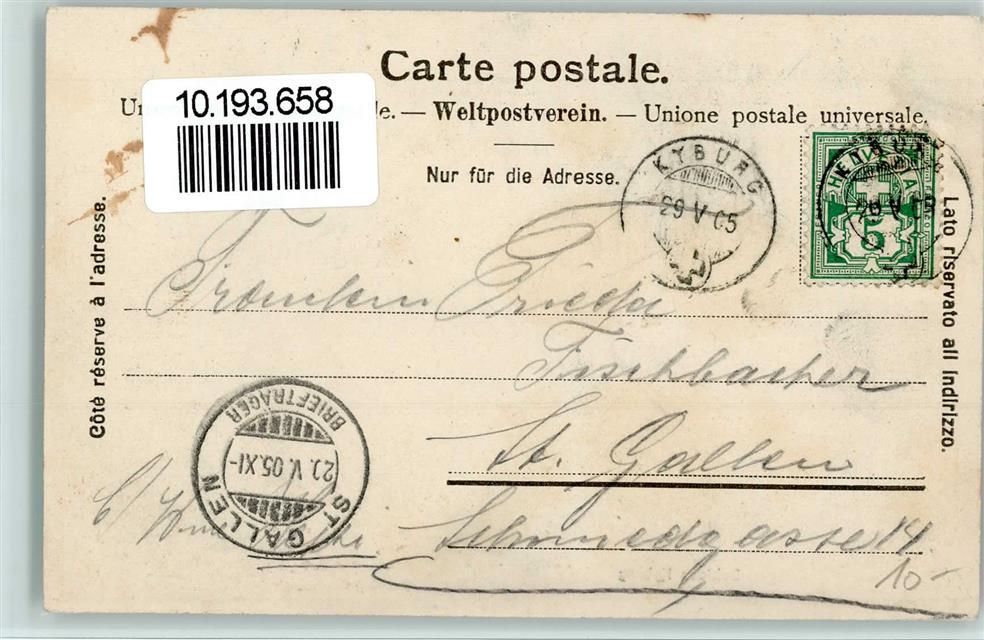 Carte postale.
10.193.658
Un e. — Weltpostverein. — Unione postale universale.
Nur für die Adresse.
KYBURG
29 V 05
5
Côté réservé à l'adresse.
Lato riservato all indirizzo.
Fräulein Frieda
Fischbacher
St. Gallen
Schmiedgasse 14.
BRIEFTRÄGER
V. 05. XI-
ST. GALLEN
10-